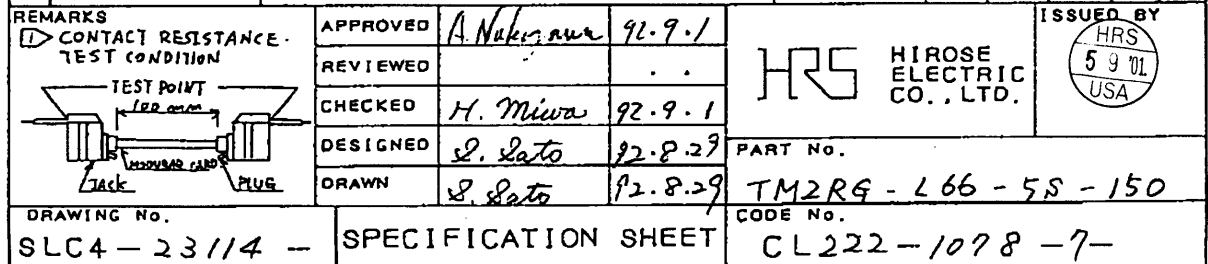 REMARKS
1 CONTACT RESISTANCE.
TEST CONDITION
TEST POINT
100 mm
MODULAR CORD
JACK
PLUG
APPROVED 92.9.1
REVIEWED . .
CHECKED H. Miwa 92.9.1
DESIGNED S. Sato 92.8.29
DRAWN S. Sato 92.8.29
HRS HIROSE
ELECTRIC
CO., LTD.
ISSUED BY
HRS
5 9 '01
USA
PART No.
TM2RG-L66-5S-150
DRAWING No.
SLC4-23114-
SPECIFICATION SHEET
CODE No.
CL222-1078-7-